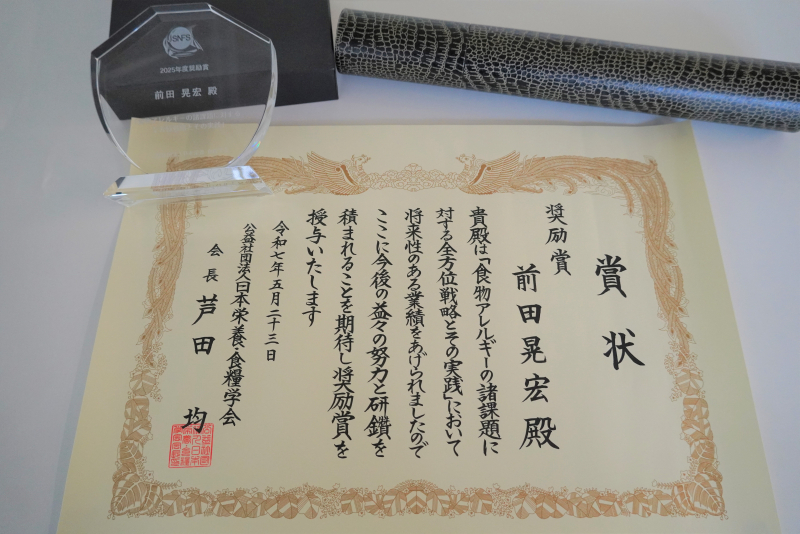 JSNFS
2025年度奨励賞
前田 晃宏 殿
賞状
奨励賞
前田晃宏殿
貴殿は「食物アレルギーの諸課題に
対する全方位戦略とその実践」において
将来性のある業績をあげられましたので
ここに今後の益々の努力と研鑽を
積まれることを期待し奨励賞を
授与いたします
令和七年五月二十三日
公益社団法人日本栄養・食糧学会
会長 芦田 均